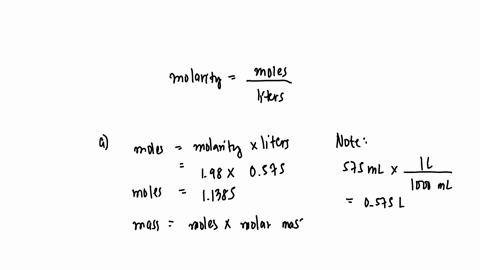 molarity = moles / liters
a) moles = molarity × liters
= 1.98 × 0.575
moles = 1.1385
mass = moles × molar mas
Note:
575 mL × 1L / 1000 mL
= 0.575 L